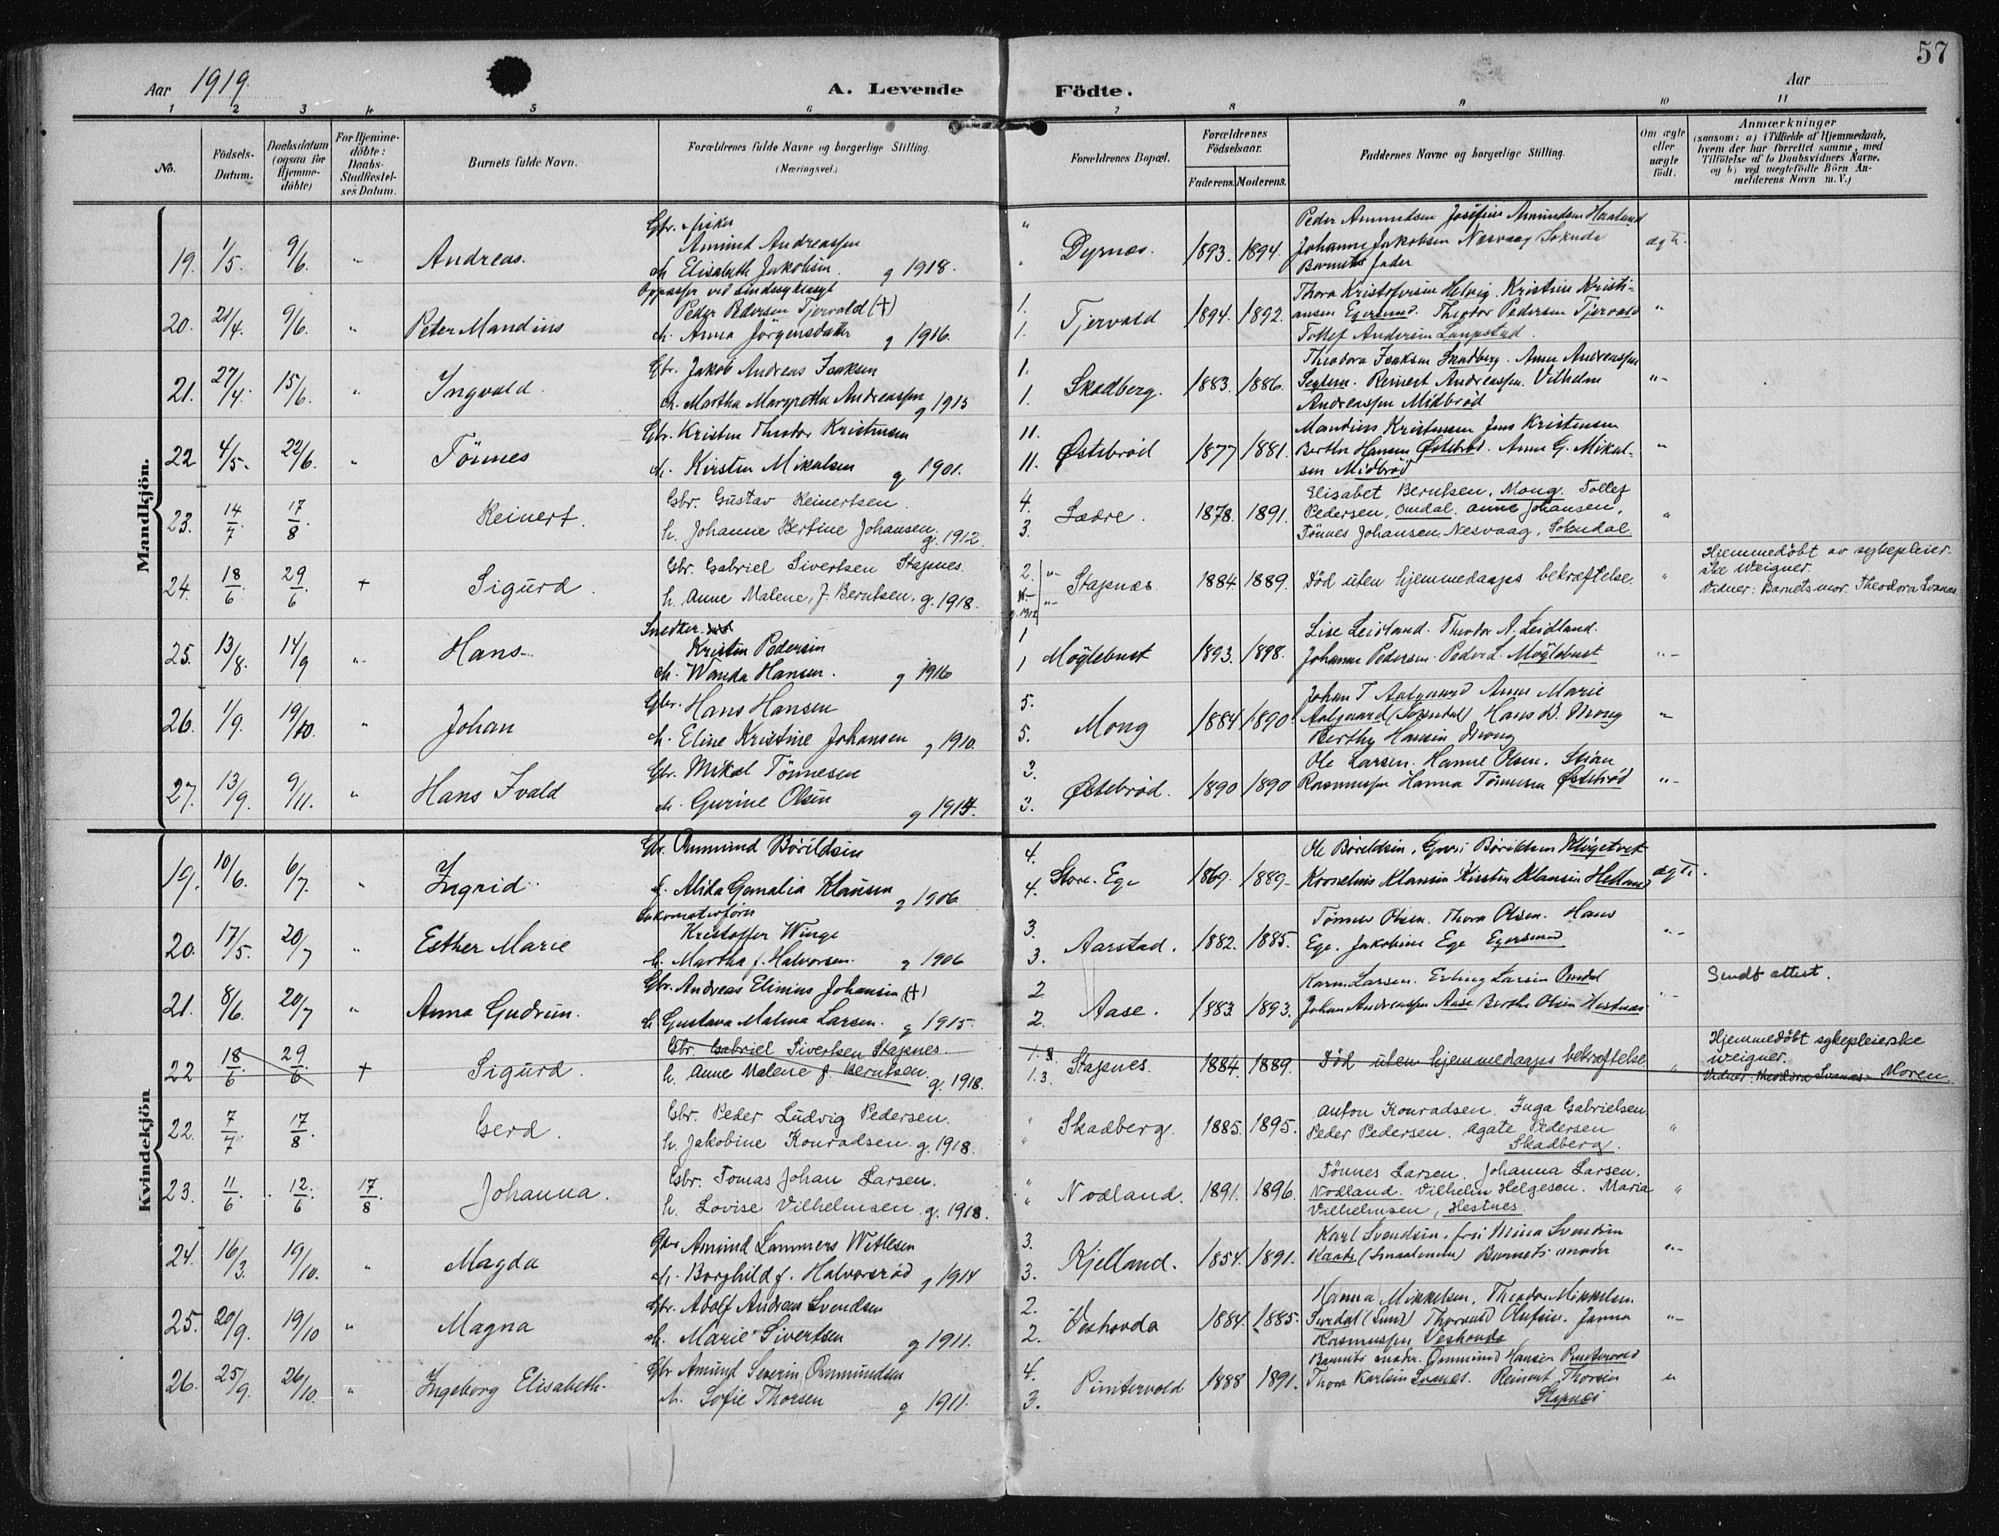 57
Aar 1919. A. Levende Födte. Aar
1 2 3 4 5 6 7 8 9 10 11
No. Födsels-Datum. Daabsdatum (ogsaa for Hjemmedöbte) For Hjemmedöbte: Daabs-Stadfæstelses Datum. Barnets fulde Navn. Forældrenes fulde Navne og borgerlige Stilling. (Næringsvei.) Forældrenes Bopæl. Forældrenes Födselsaar. Faderens. Moderens. Faddernes Navne og borgerlige Stilling. Om ægte eller uægte födt. Anmærkninger (saasom: a) i Tilfælde af Hjemmedaab, hvem der har forrettet samme, med Tilföielse af to Daabsvidners Navne, og b) ved uegtefödte Börn Anmelderens Navn m. V.)
Mandkjön.
19. 1/5. 9/6. " Andreas. Gbr. Fisker
Amund Andreassen
h. Elisabeth Jakobsen. g 1918. Dyrnæs. 1893. 1894. Peder Amundsen Josefine Amundsen Haaland
Johanne Jakobsen Nesvaag Soknda
Barnets fader
ægte.
20. 21/4. 9/6. " Peter Mandius
Oppasser ved Sindssykeasyl
Peder Pedersen Tjervald (+)
h. Anna Jørgensdatter g 1916. 1. 1. Tjervald 1894. 1892. Thora Kristofersen Helvig. Kristine Kristi-
ansen Egersund. Theodor Pedersen Tjervald
Tollef Andersen
"
21. 27/4. 15/6. " Ingvald. Gbr. Jakob Andreas Isaksen
h. Martha Margrethe Andreassen g 1915 1. 1. Skadberg. 1883. 1886. Theodora Isaksen Skadberg. Anne Andreassen
Segtem. Reinert Andreassen. Vilhelm
Andreassen Midbrød
"-
22 4/5. 22/6. " Tönnes Gbr. Kristen Theodor Kristensen
h. Kirsten Mikalsen g 1901. 11. 11. Østebrød 1877 1881. Mandius Kristensen Jens Kristensen
Berthe Hansen Østebrød. Anne G. Mikal-
sen Midbrød
"
23. 14/7 17/8. Reinert. Gbr. Gustav Reinertsen.
h. Johanne Bertine Johansen. g. 1912. 4. 3. Sædre. 1878. 1891. Elisabet Berntsen, Mong. Tollef
Pedersen, Omdal. Anne Johansen,
Tönnes Johansen. Nesvaag, Sokndal
"
24. 18/6 29/6 + Sigurd Gbr. Gabriel Sivertsen Stapnes.
h. Anne Malene f. Berntsen. g. 1918. 2. Stapnes 1884. 1889. Död uten hjemmedaaps bekræftelse. " Hjemmedöbt av sykepleier-
ske Weigner.
Vidner: Barnets mor. Theodora Svanes.
25. 13/8. 14/9 " Hans. Snedker
Kristen Pedersen
h. Wanda Hansen. g 1916 1 1 Møglebust 1893. 1898. Lise Leidland. Theodor A. Leidland.
Johanne Pedersen. Peder L. Møglebust
"-
26. 1/9. 19/10 " Johan Gbr. Hans Hansen
h. Eline Kristine Johansen g 1910. 5. 5. Mong 1884 1890. Johan T Aalgaard Anne Marie
Aalgaard (Sogndal) Hans B. Mong
Berthe Hansen Mong
"
27. 13/9. 9/11. " Hans Ivald Gbr. Mikal Tönnesen
h. Gurine Olsen g 1914. 3. 3. Østebrød. 1890 1890 Ole Larsen. Hanne Olsen. Stian
Rasmussen Hanna Tönnesen Østebrød
"-
Kvindekjön
19. 10/6. 6/7. " Ingrid. Gbr. Ommund Börildsen
f. Alida Gemalia Klausen g 1906 4. 4. Store-Ege 1869. 1889. Ole Böreldsen, Guri Böreldsen Kløgetvet
Kornelius Klausen Kirsten Klausen Helland
ægte.
20. 17/5. 20/7 " Esther Marie Lokomotivfører
Kristoffer Winge
h. Martha f. Halvorsen. g 1906 3. 3. Aarstad. 1882. 1885. Tönnes Olsen. Thora Olsen. Hans
Ege. Jakobine Ege Egersund
"-
21. 8/6. 20/7 " Anna Gudrun. Gbr. Andreas Elinius Johansen (+)
h. Gustava Malena Larsen. g 1915. 2 2. Aase. 1883. 1893. Karen Larsen. Erling Larsen Omdal
Johan Andreassen Aase Berthe Olsen Hestnæs
"- Sendt attest.
22 18/6 29/6 + Sigurd. Gbr. Gabriel Sivertsen Stapnes.
h. Anne Malene f. Berntsen g. 1918. Stapnes. 1884. 1889. Död uten hjemmedaaps bekræftelse " Hjemmedöbt sykepleierske
Weigner.
Vidner: Theodora Svanes. Moren
22. 7/7 17/8. Gerd. Gbr. Peder Ludvig Pedersen.
h. Jakobine Konradsen g. 1918. Skadberg. 1885. 1895. Anton Konradsen. Inga Gabrielsen
Peder Pedersen. Agate Pedersen
Skadberg.
"
23. 11/6 12/6 17/8 Johanna. Gbr. Tomas Johan Larsen.
h. Lovise Vilhelmsen g. 1918. Nodland. 1891. 1896. Tönnes Larsen. Johanna Larsen.
Nodland. Vilhelm Helgesen. Maria
Vilhelmsen, Hestnes.
"
24. 16/3. 19/10. " Magda Gbr Amund Lammers Wetlesen
h. Borghild f. Halvorsrød g 1914 3. 3. Kjelland. 1854. 1891. Karl Svendsen, fru Mina Svendsen
Raade (Smaalenene) Barnets moder
"-
25. 20/9. 19/10 " Magna Gbr. Adolf Andreas Svendsen
h. Marie Sivertsen g 1911. 2. 2. Veshovda 1884. 1885. Hanna Mikkelsen, Theodor Mikkelsen.
Surdal (Lund) Thorvald Olufsen. Janna
Rasmussen Veshovda
"-
26. 25/9. 26/10. " Ingeborg Elisabeth. Gbr Amund Severin Ommundsen
h. Sofie Thorsen g 1911. 4. 3. Puntervold 1888 1891. Barnets moder. Ommund Hansen Puntervold
Thora Karlsen Svanes. Reinert Thorsen
Stapnes
"